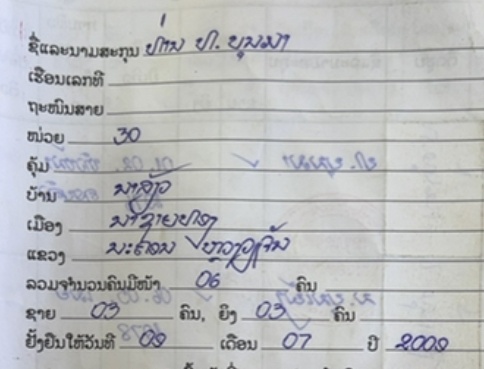 ຊື່ແລະນາມສະກຸນ ທ່ານ ທ. ບຸນມາ
ເຮືອນເລກທີ
ຖະໜົນສາຍ
ໜ່ວຍ 30
ຄຸ້ມ
ບ້ານ
ເມືອງ ນາຊາຍທອງ
ແຂວງ ນະຄອນ ຫຼວງວຽງຈັນ
ລວມຈຳນວນຄົນມີໜ້າ 06 ຄົນ
ຊາຍ 03 ຄົນ, ຍິງ 03 ຄົນ
ຢັ້ງຢືນໃຫ້ວັນທີ 09 ເດືອນ 07 ປີ 2009